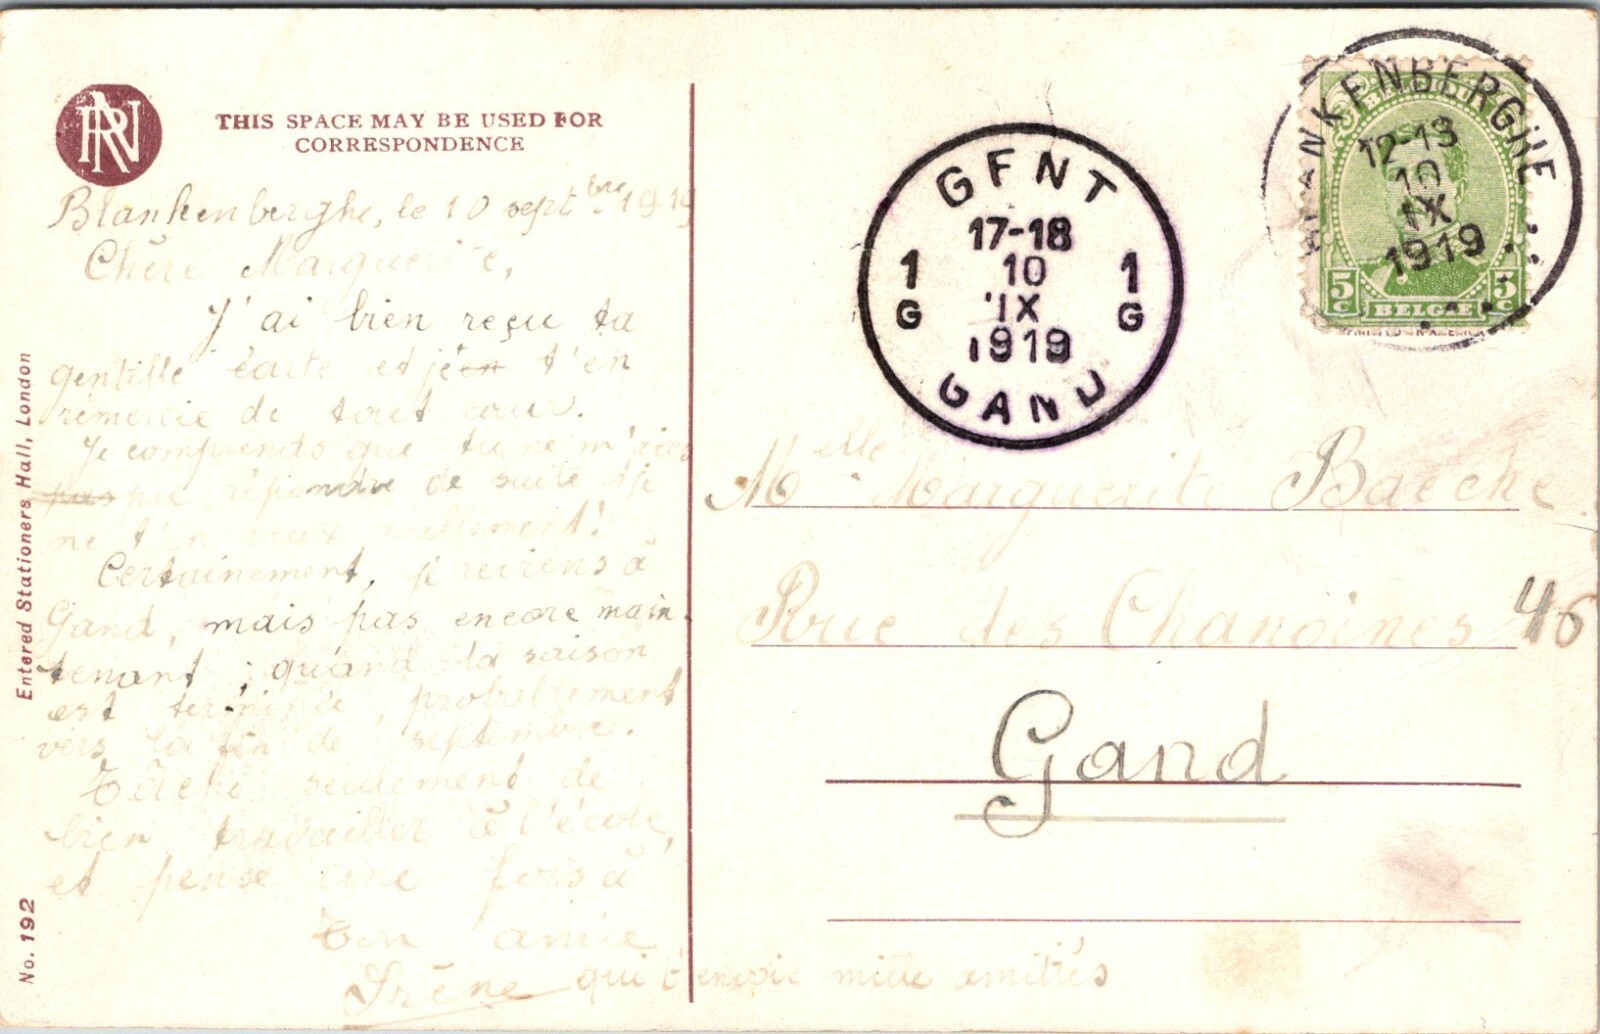 RN
THIS SPACE MAY BE USED FOR
CORRESPONDENCE
Blankenberghe, le 10 sept.bre 1919
Chère Marguerite,
J'ai bien reçu ta
gentille carte et je t'en
remercie de tout cœur.
Je comprends que tu ne m'aies
pas pu répondre de suite et je
ne t'en veux nullement!
Certainement, je reviens à
Gand, mais pas encore main-
tenant; quand la saison
est terminée, probablement
vers la fin de septembre.
Tâche seulement de
bien travailler à l'école,
et pense une fois à
Ton amie
Irène qui t'envoie mille amitiés
Entered Stationers Hall, London
No. 192
GENT
17-18
10
IX
1919
1 G
1 G
GAND
BLANKENBERGHE
12-13
10
IX
1919
5 C
BELGIE
5 C
Melle Marguerite Baeche
Rue des Chanoines 46
Gand